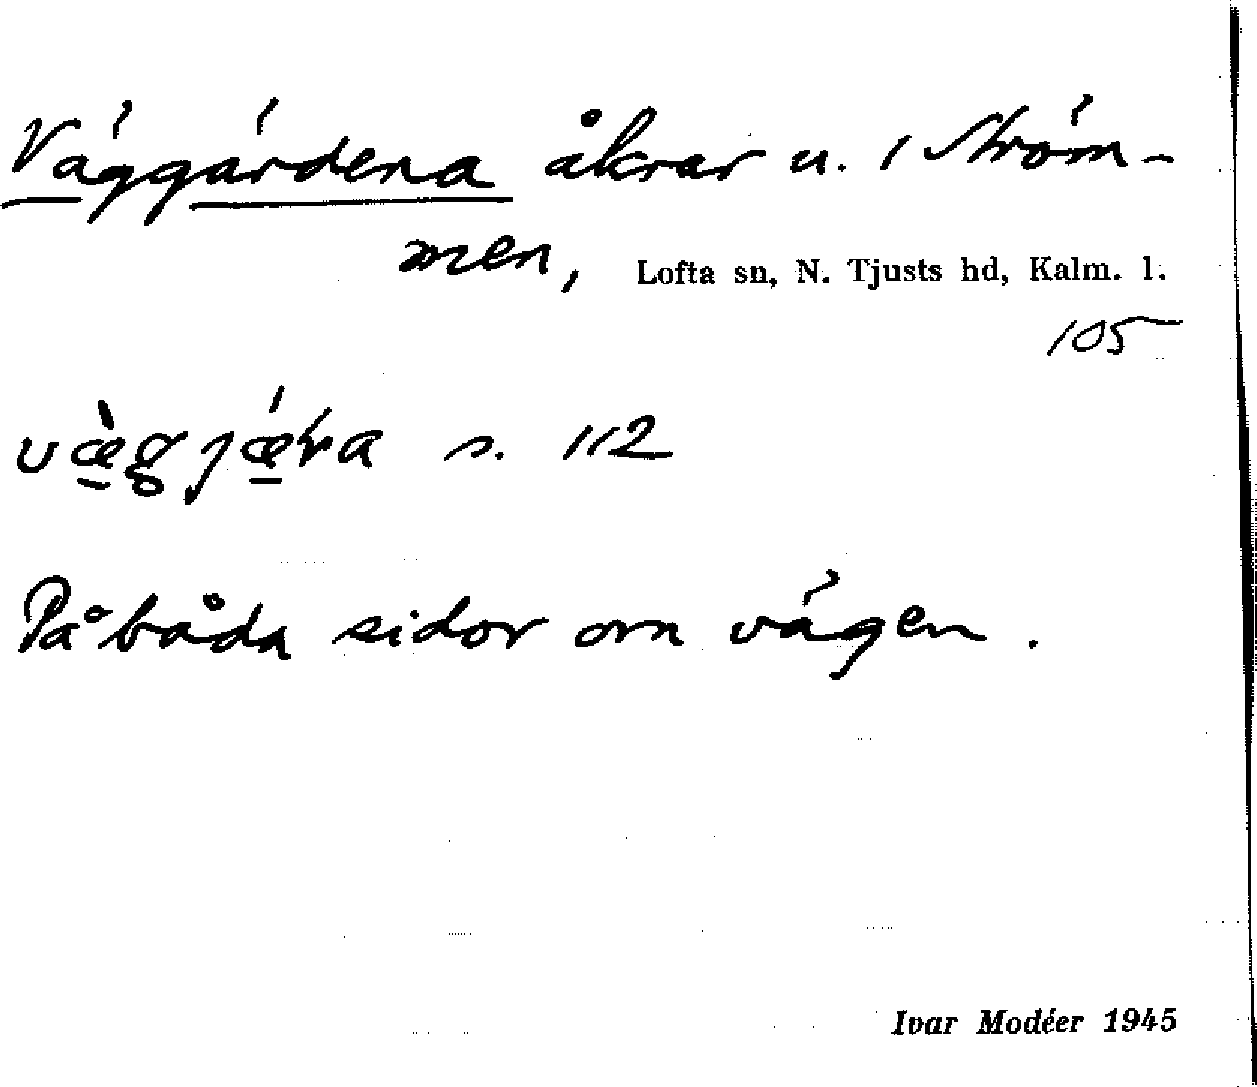 Väggärdena åkrar u. 1 Ström-
men, Lofta sn, N. Tjusts hd, Kalm. l.
105
væ̀gjǽra s. 112
På båda sidor om vägen.
Ivar Modéer 1945